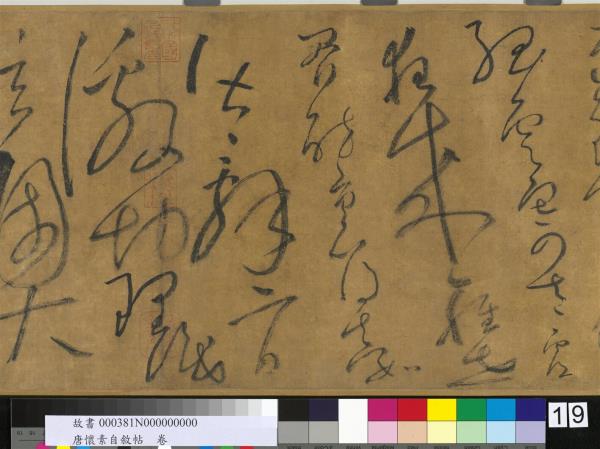 孤雲寄太虛
狂來輕世
界醉裏得真如
皆辭旨
激切理識
玄奧
19
故書 000381N000000000
唐懷素自敘帖 卷